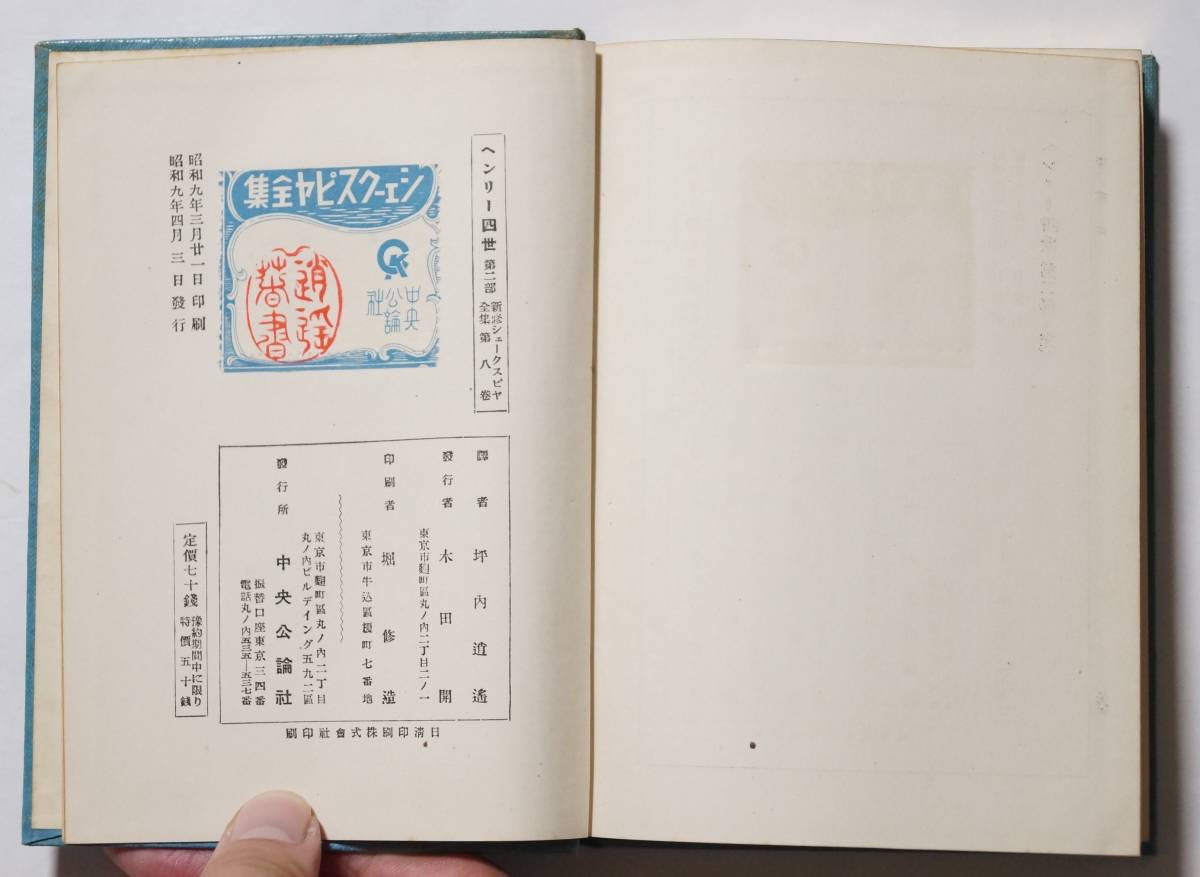 ヘンリー四世 第二部 新修シェークスピヤ全集 第八卷
シェークスピヤ全集
中央
公論
社
逍遥
昭和九年三月廿一日印刷
昭和九年四月三日發行
譯者 坪內逍遙
發行者 木田開
東京市麴町區丸ノ內二丁目二ノ一
印刷者 堀修造
東京市牛込區榎町七番地
東京市麴町區丸ノ內二丁目
丸ノ內ビルデイング五九二區
發行所 中央公論社
振替口座東京三四番
電話丸ノ內五三五—五三七番
定價七十錢 豫約期間中に限り
特價五十錢
日淸印刷株式會社印刷